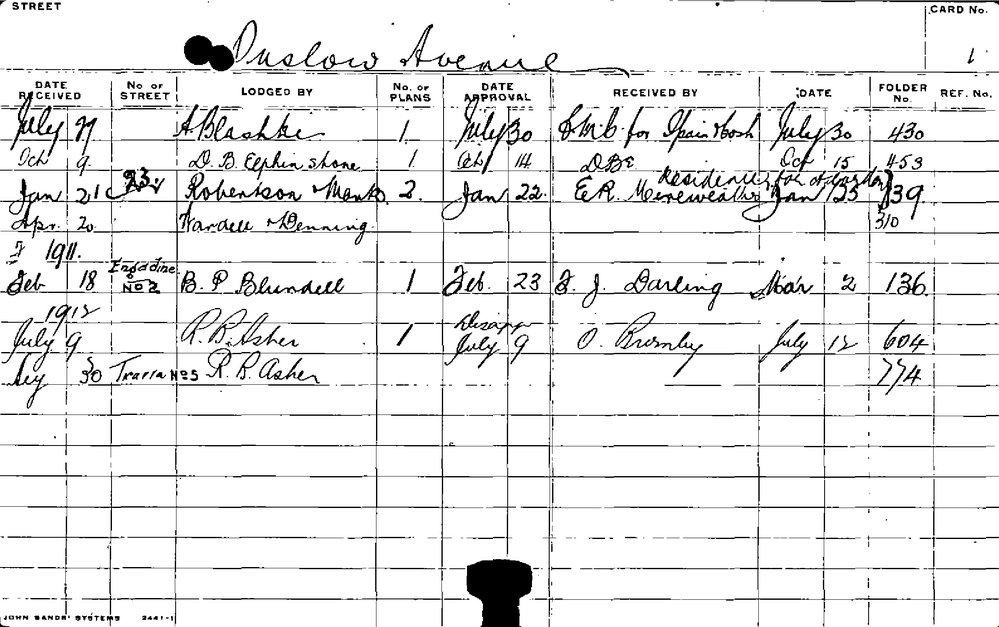 STREET
CARD No.
Onslow Avenue
1
DATE RECEIVED No OF STREET LODGED BY No. OF PLANS DATE APPROVAL RECEIVED BY DATE FOLDER No. REF. No.
July 27 A Blashki 1 July 30 for Spain & Cosh July 30 430
Oct 9 D. B. Elphinstone 1 Oct 14 DBE Oct 15 453
Residence for
Jan 21 23 Robertson & Marks 2. Jan 22. E.R. Mereweather Jan 23 39.
Apr. 20 Wardell & Denning. 310
1911.
Feb 18 Engadine No 2 B. P Blundell 1 Feb. 23 F. J. Darling Mar 2 136.
1912
July 9 R. B. Asher 1 Disapp July 9 O. Brornby July 12 604
30 No 5 R. B. Asher 774
JOHN SANDS' SYSTEMS 2441-1